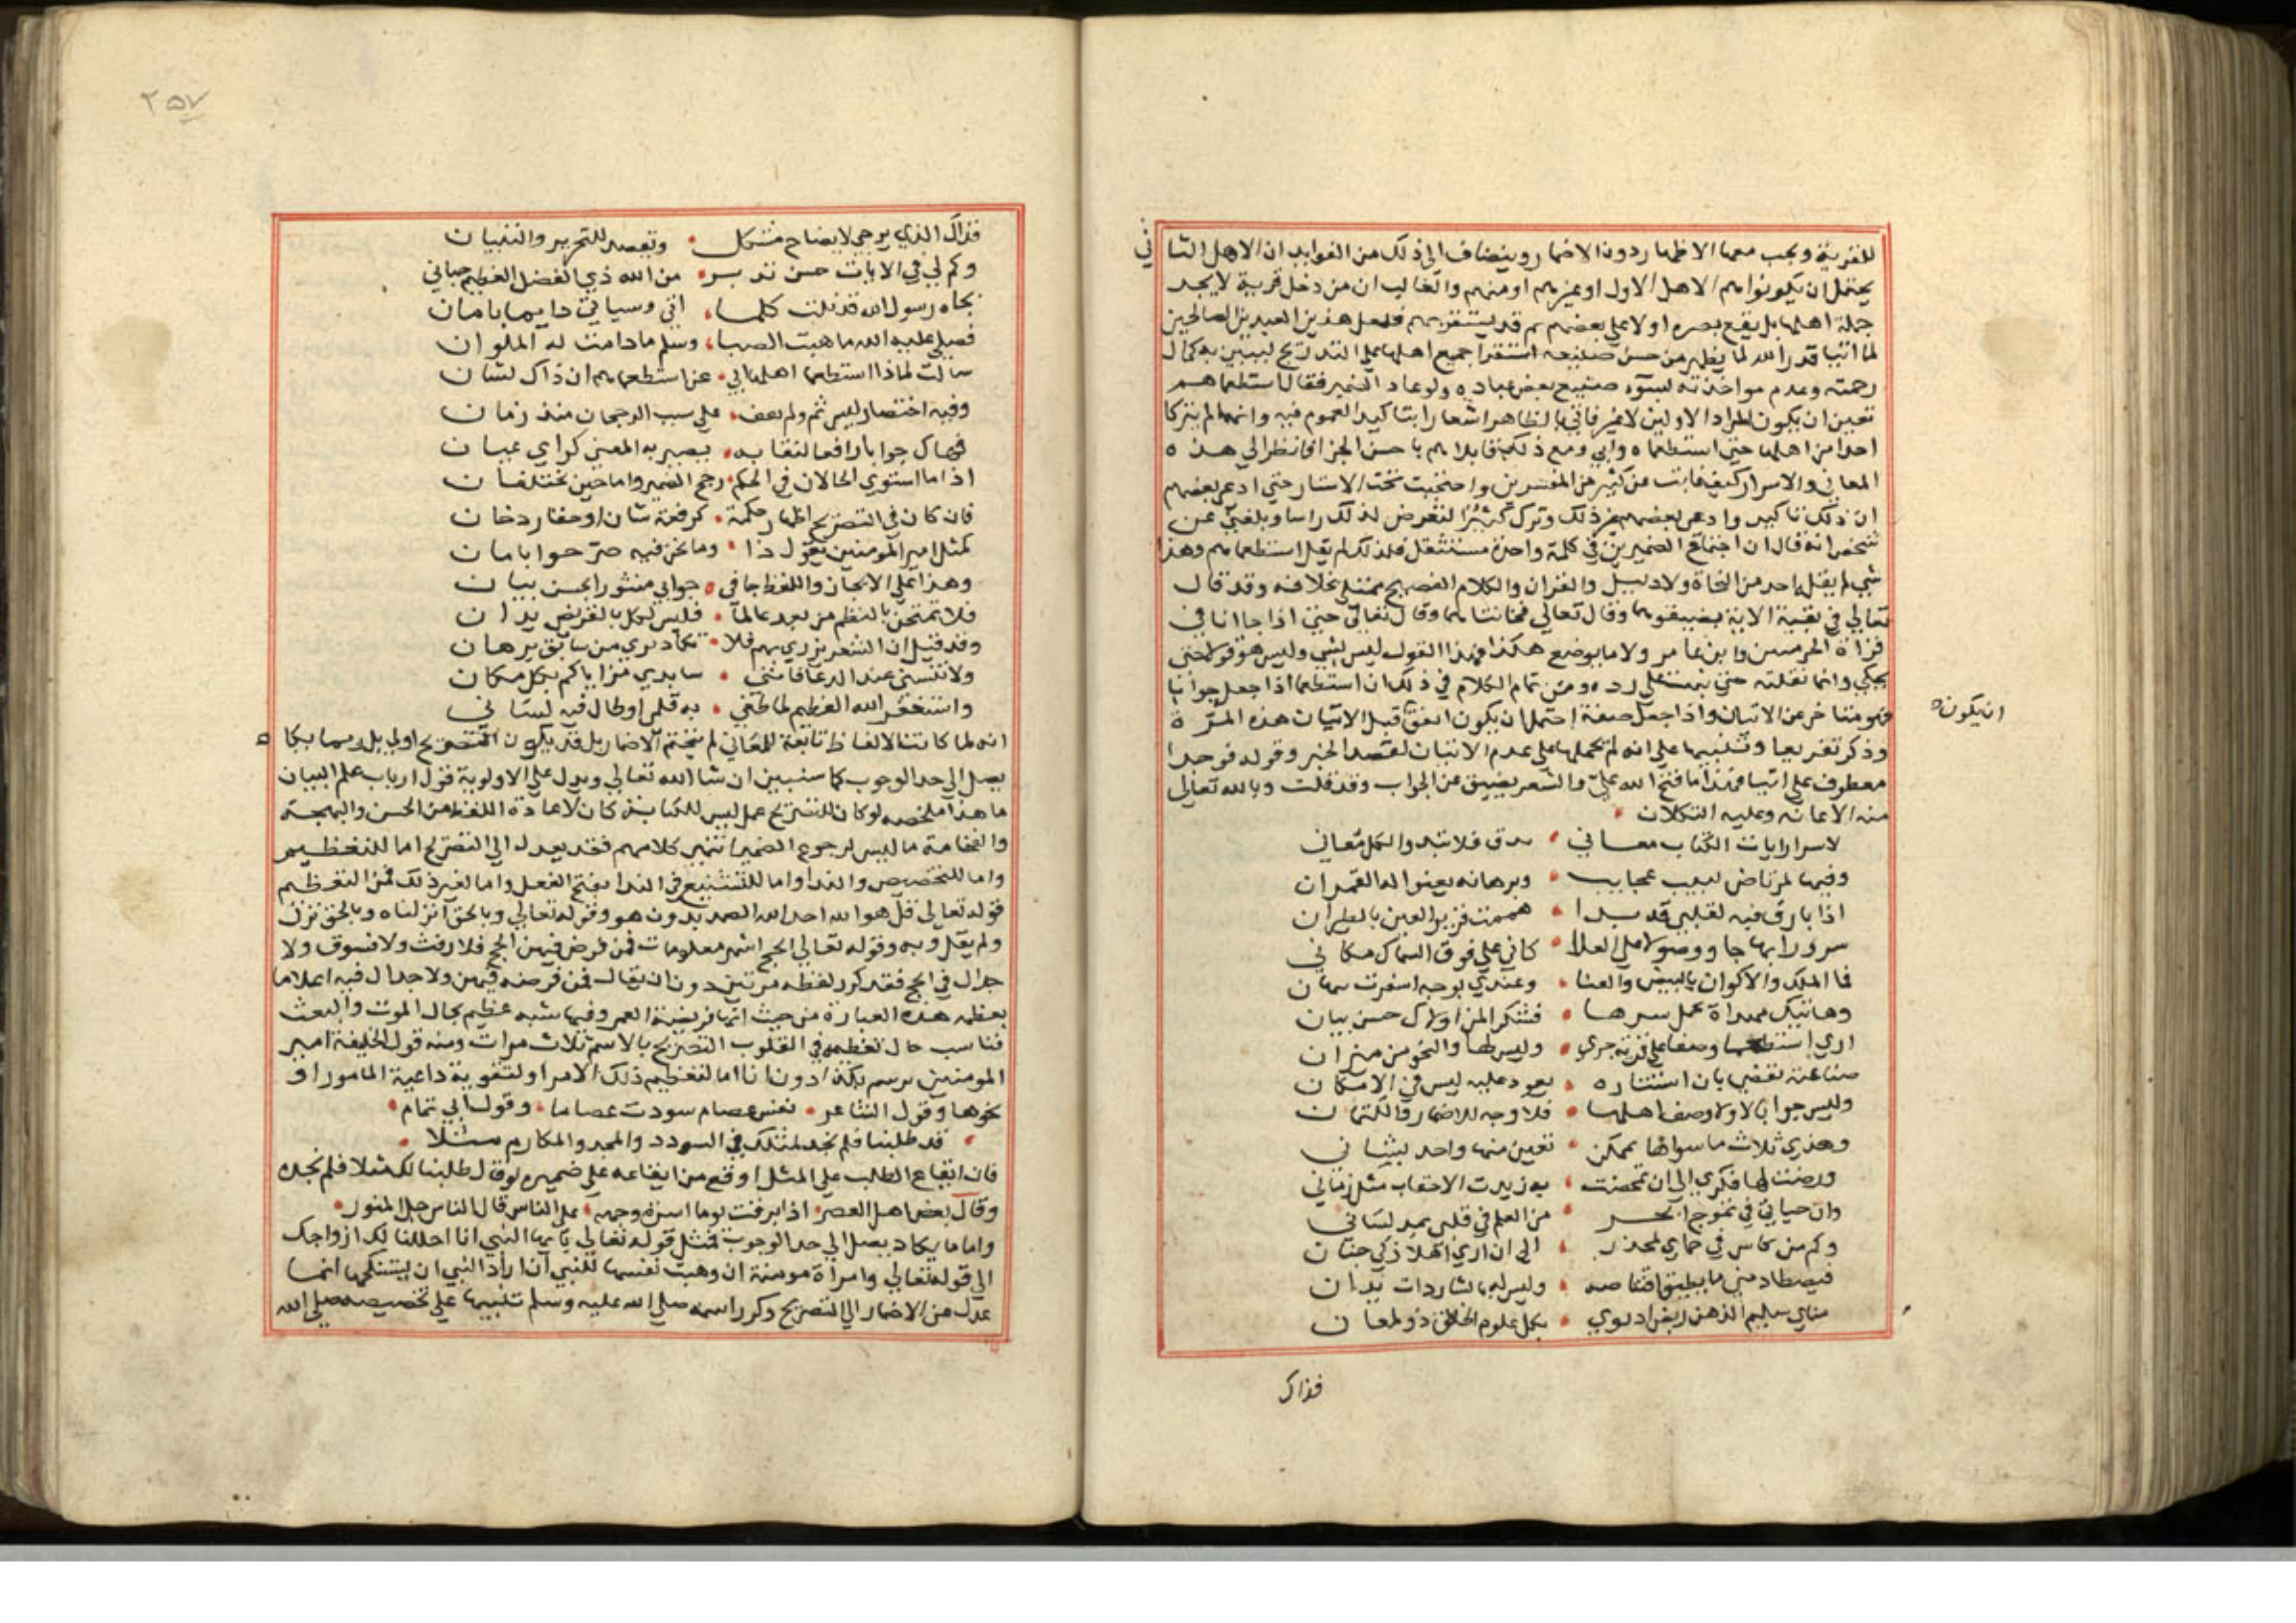 للقرية ويجب معها الاظهار دون الاضمار وينضاف الى ذلك من الفوايد ان الاهل الثاني
يحتمل ان يكونوا هم الاهل الاول او غيرهم او منهم والغالب ان من دخل قرية لا يجد
جملة اهلها بل يقع بصره اولا على بعضهم ثم قد يستقريهم فلعل هذين العبدين الصالحين
لما اتيا قدر الله لما يظهر من حسن صنيعه استقرا جميع اهلها على التدريج ليبين به كمال
رحمته وعدم مواخذته لسوء صنيع بعض عباده ولو عاد الضمير فقال استطعماهم
تعين ان يكون المراد الاولين لا غير فاتي بالظاهر اشعارا بتاكيد العموم فيه وانهما لم يتركا
احدا من اهلها حتى استطعماه وابي ومع ذلك قابلاهم باحسن الجزا فانظر الي هذه
المعاني والاسرار كيف غابت عن كثير من المفسرين واحتجبت تحت الاستار حتي ادعى بعضهم
ان ذلك تاكيد وادعى بعضهم غير ذلك وترك كثير التعرض لذلك راسا وبلغني عن
شخص انه قال ان اجتماع الضميرين في كلمة واحدة مستثقل فلذلك لم يقل استطعماهم وهذا
شي لم يقله احد من النحاة ولا دليل والقران والكلام الفصيح ممتلي بخلافه وقد قال
تعالي في بقية الاية يضيفوهما وقال تعالي فخانتاهما وقال تعالى حتى اذا جاانا في
قراة الحرميين وابن عامر ولا ما بوضع هكذا وهذا القول ليس بشي وليس هو قولا حتى
يحكي وانما نقلته حتي ينبه علي رده ومن تمام الكلام في ذلك ان استطعما اذا جعل جوابا
فهو متاخر عن الاتيان واذا جعل صفة احتمل ان يكون اتفق قبل الاتيان هذه المرة
ان يكون
وذكر تعريفا وتنبيها علي انه لم يحملها على عدم الاتيان لقصد الخبر وقوله فوجدا
معطوف على اتيا فهذا ما فتح الله علي والشعر يضيق عن الجواب وقد قلت وبالله تعالى
منه الاعانة وعليه التكلان
لاسرار ايات الكتاب معاني تدق فلا تبدو الكل معاني
وفيها لمرتاض لبيب عجايب وبرهانه يعنوا له القمران
اذا بارق فيه لقلبي قد بدا هممت قرير العين بالطيران
سرورا بها جا ووصولا على العلا كاني علي فوق السماك مكاني
فما الملك والاكوان بالبيض والعنا وعندي بوجه اسفرت بهان
وهاتيك مبداة عمل سرها فشكر المن اولاك حسن بيان
اري استطعما وصفا علي قرية جري وليس لها والنحو من ميزان
صناعته تقضي بان استتاره يعود عليه ليس في الامكان
وليس جوابا لا ولا وصف اهلها فلا وجه للاضمار والكتمان
وهذي ثلاث ما سواها ممكن تعين منها واحد لبيناني
ورضت لها فكري الي ان تمحضت به زبدت الاحقاب مثل زماني
وان حياتي في تموج ابحر من العلم في قلبي يمد لساني
وكم من كاس في حماي لمخدر الى ان اري اهلا ذكي جنان
فيصطاد مني ما يطيق اقتناصه وليس له بالشاردات يدان
مناي سليم الذهن ريض ارتوي بكل علوم الخلق ذو لمعان
فذاك
٢٥٧
فذاك الذي يرجي لايضاح مشكل ويقصد للتحرير والتبيان
وكم لي في الايات حسن تدبر من الله ذي الفضل العظيم حباني
بجاه رسول الله قد نلت كلما اتى وسياتي دايما بامان
فصلى عليه الله ما هبت الصبا وسلم ما دامت له الملوان
سالت لماذا استطعما اهلها اتي عن استطعماهم ان ذاك لشان
وفيه اختصار ليس ثم ولم تقف علي سبب الرجحان منذ زمان
فهاك جوابا رافعا لنقابه يصير به المعني كراي عيان
اذا ما استوي الحالان في الحكم رجح الضمير واما حين تختلفان
فان كان في التصريح اظهار حكمة كرفعة شان او حقار دخان
كمثل امير المومنين يقول ذا وما نحن فيه صرحوا بامان
وهذا علي الايجاز واللفظ جا في جوابي منثورا بحسن بيان
فلا تمتحن بالنظم من بعد عالما فليس لكل بالقريض يدان
وقد قيل ان الشعر يزري بهم فلا تكاد تري من سابق برهان
ولا تنسني عند الدعا فانني سابدي مزاياكم بكل مكان
واستغفر الله العظيم لما طغي به قلم او طال فيه لساني
انه لما كانت الالفاظ تابعة للمعاني لم يتحتم الاضمار بل قد يكون التصريح اولي بل ربما يكاد
يصل الي حد الوجوب كما سنبين ان شا الله تعالي ويدل علي الاولوية قول ارباب علم البيان
ما هذا ملخصه لو كان للتصريح عمل ليس للكناية كان لاعادة اللفظ من الحسن والبهجة
والفخامة ما ليس لرجوع الضمير انتهى كلامهم فقد يعدل الي التصريح اما للتعظيم
واما للتخصيص واما للتشنيع في الندا بقبح الفعل واما لغير ذلك فمن التعظيم
قوله تعالى قل هو الله احد الله الصمد بدون هو وقوله تعالي وبالحق انزلناه وبالحق نزل
ولم يقل وبه وقوله تعالي الحج اشهر معلومات فمن فرض فيهن الحج فلا رفث ولا فسوق ولا
جدال في الحج فقد كرر لفظه مرتين دون ان يقال فمن فرضه فيهن ولا جدال فيه اعلاما
بعظمة هذه العبادة من حيث انها فريضة العمر وفيها شبه عظيم بحال الموت والبعث
فناسب حال تعظيمه في القلوب التصريح بالاسم ثلاث مرات ومنه قول الخليفة امير
المومنين يرسم بكذا دون انا اما لتعظيم ذلك الامر او لتقوية داعية المامور او
نحوها وقول الشاعر نفس عصام سودت عصاما وقول ابي تمام
قد طلبنا فلم نجد لمثلك في السودد والمجد والمكارم مثلا
فان ايقاع الطلب علي المثل اوقع من ايقاعه علي ضميره لو قال طلبنا لك مثلا فلم نجده
وقال بعض اهل العصر اذا برقت يوما اسرة وجهه على الناس قال الناس جل المنور
واما ما يكاد يصل الي حد الوجوب فمثل قوله تعالي يا يها النبي انا احللنا لك ازواجك
الي قوله تعالي وامراة مومنة ان وهبت نفسها للنبي ان اراد النبي ان يستنكحها انما
عدل عن الاضمار الي التصريح وكرر اسمه صلي الله عليه وسلم تنبيها علي تخصيصه صلي الله